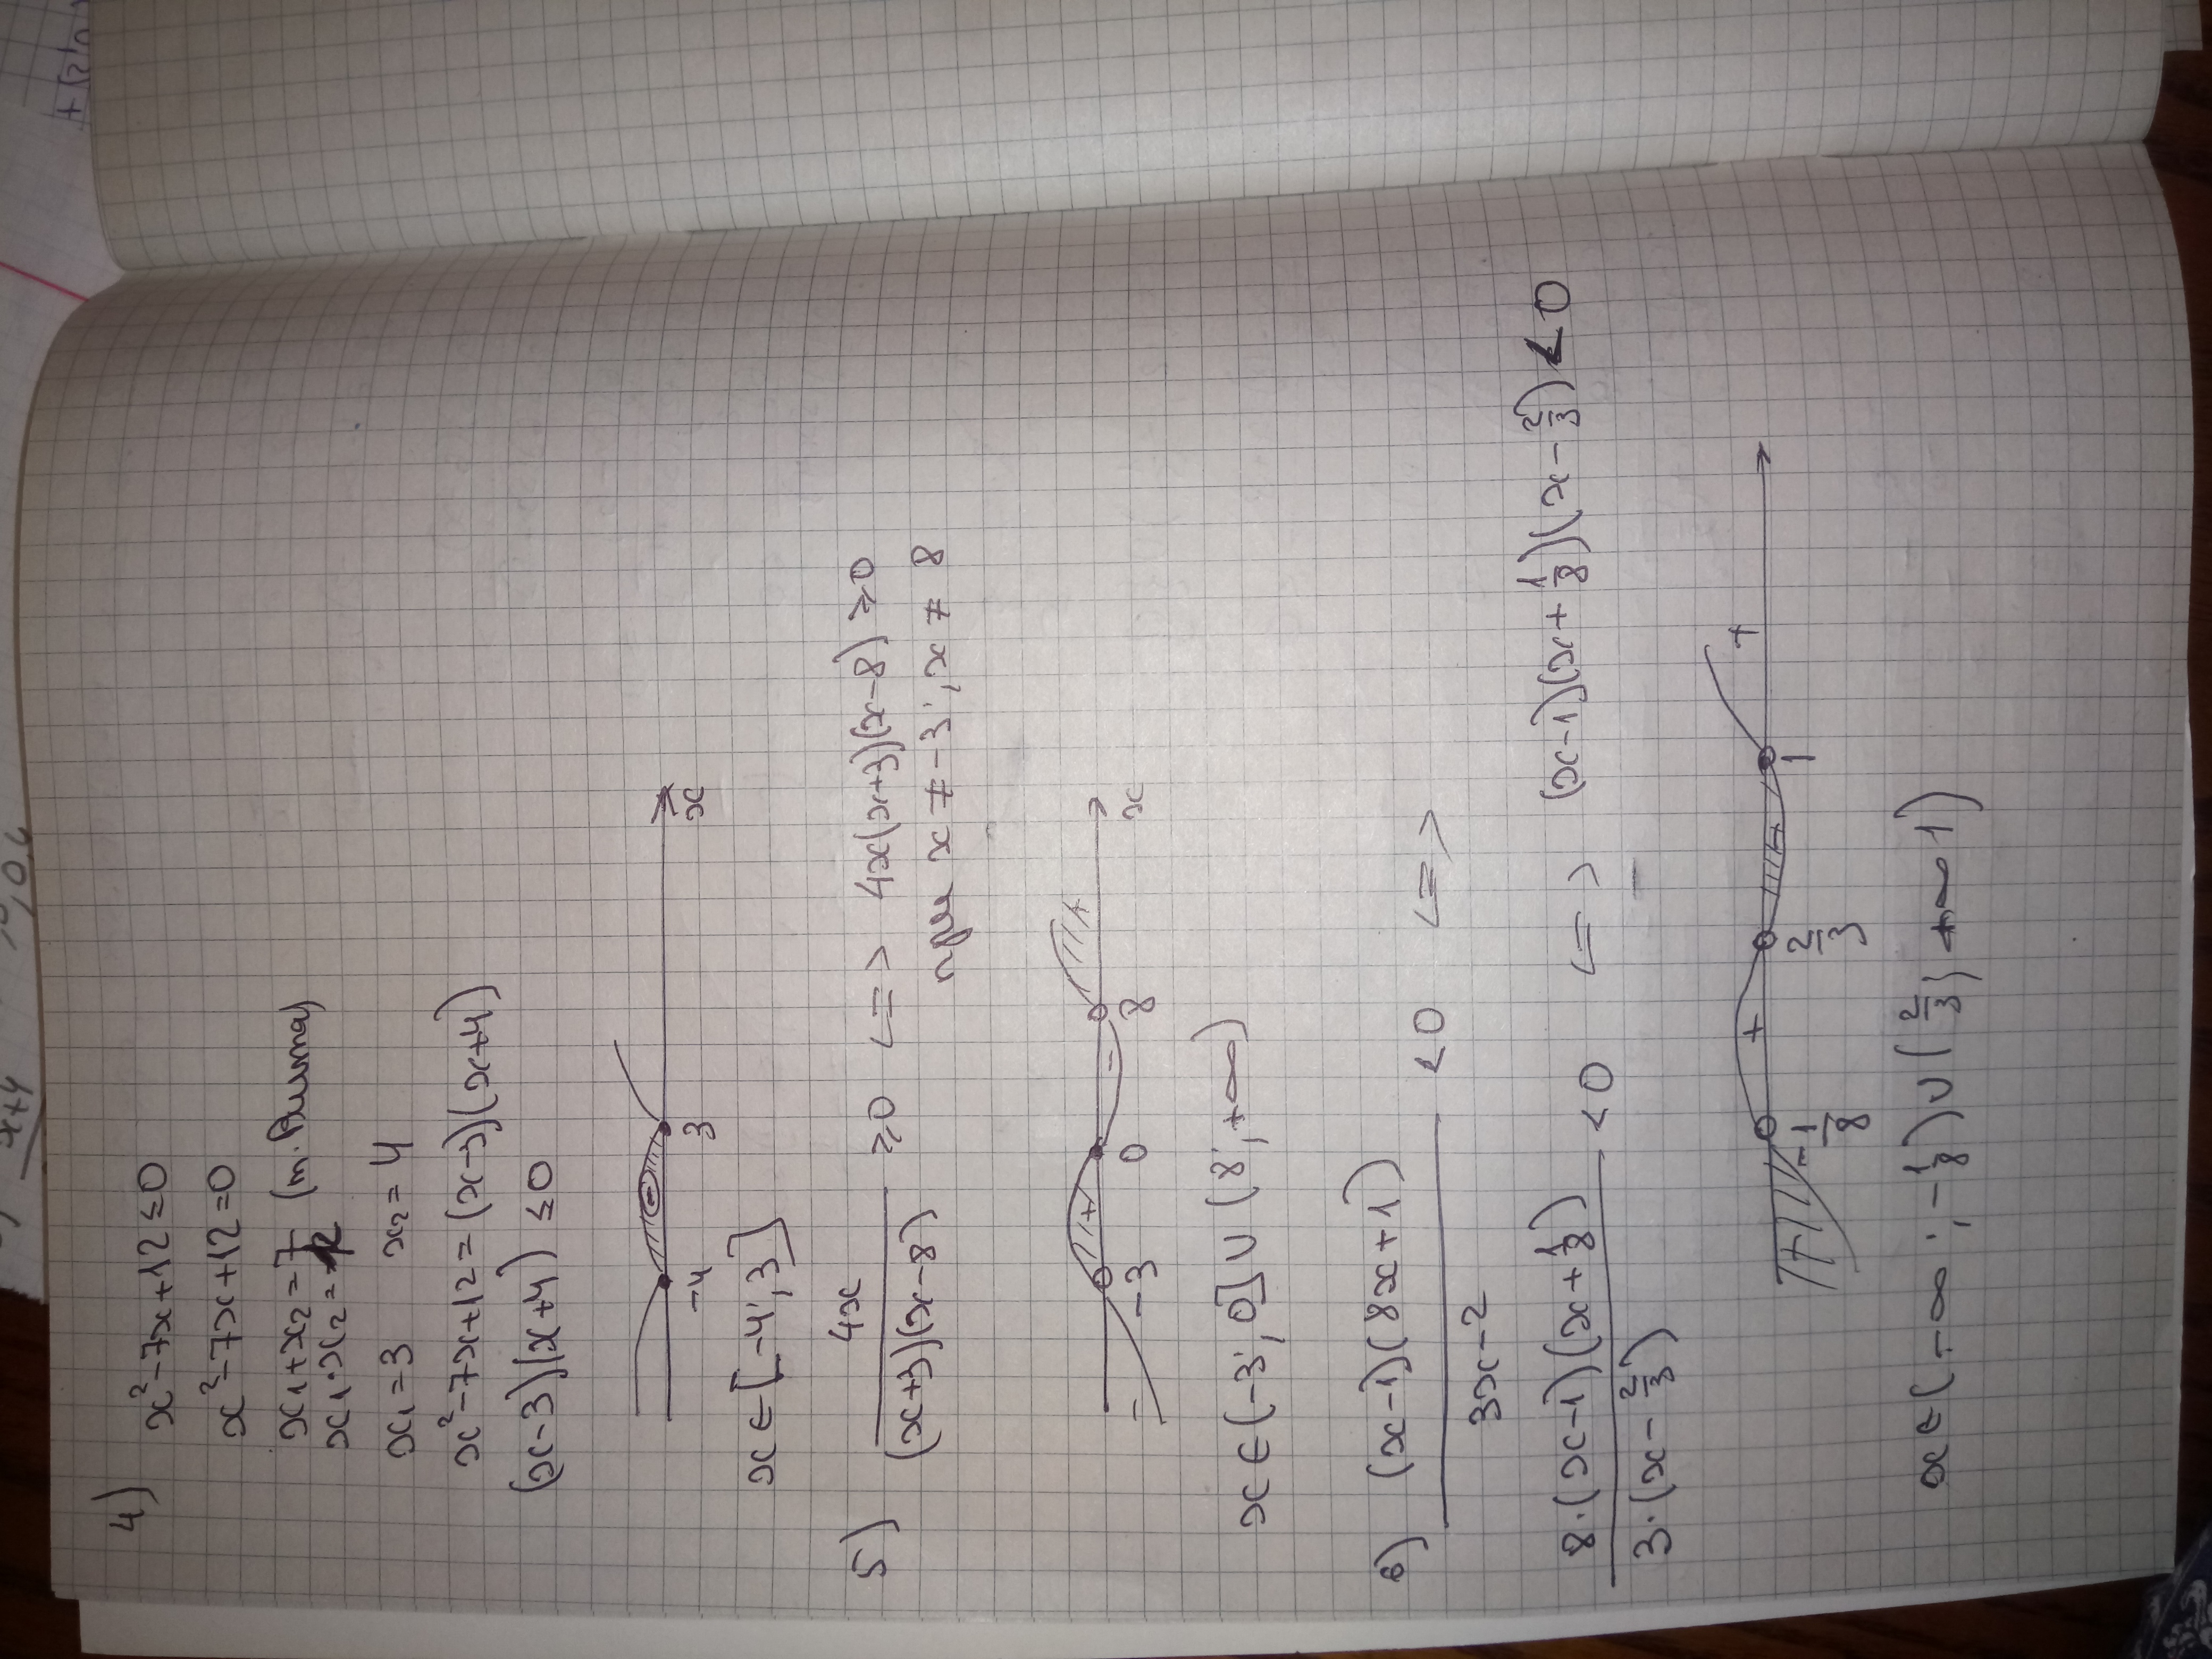 4)
x² - 7x + 12 ≤ 0
x² - 7x + 12 = 0
x₁ + x₂ = 7 (т. Виета)
x₁ · x₂ =
x₁ = 3 x₂ = 4
x² - 7x + 12 = (x - 3)(x + 4)
(x - 3)(x + 4) ≤ 0
-4 3 x
x ∈ [-4; 3]
5) 4x/((x + 3)(x - 8)) ≥ 0 <=> 4x(x + 3)(x - 8) ≥ 0
при x ≠ -3; x ≠ 8
- + - +
-3 0 8 x
x ∈ (-3; 0] ∪ (8; +∞)
6) ((x - 1)(8x + 1))/(3x - 2) < 0 <=>
(8·(x - 1)(x + 1/8))/(3·(x - 2/3)) < 0 <=> (x - 1)(x + 1/8)(x - 2/3) < 0
+ - +
-1/8 2/3 1
x ∈ (-∞; -1/8) ∪ (2/3; 1)